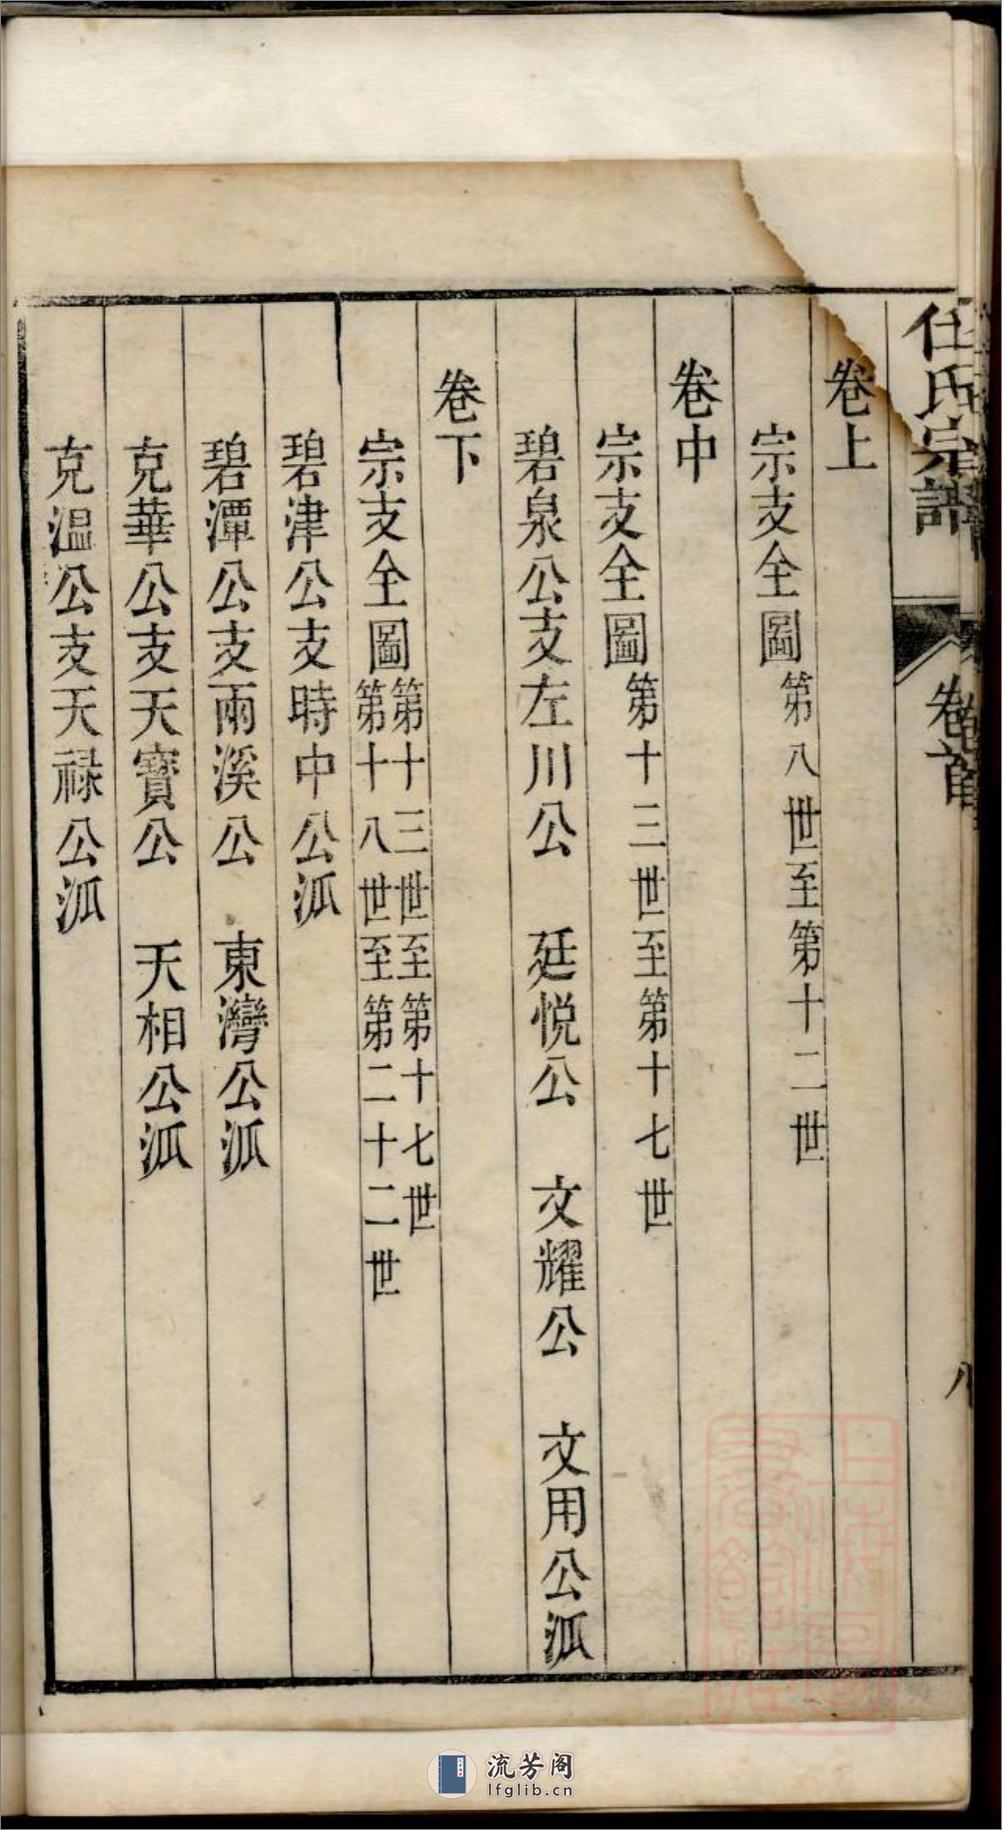 任氏宗譜 卷首 八
卷上
宗支全圖 第八世至第十二世
卷中
宗支全圖 第十三世至第十七世
碧泉公支左川公 廷悦公 文耀公 文用公派
卷下
宗支全圖 第十三世至第十七世
第十八世至第二十二世
碧津公支時中公派
碧潭公支兩溪公 東灣公派
克華公支天寶公 天相公派
克溫公支天禄公派
流芳阁
lfglib.cn